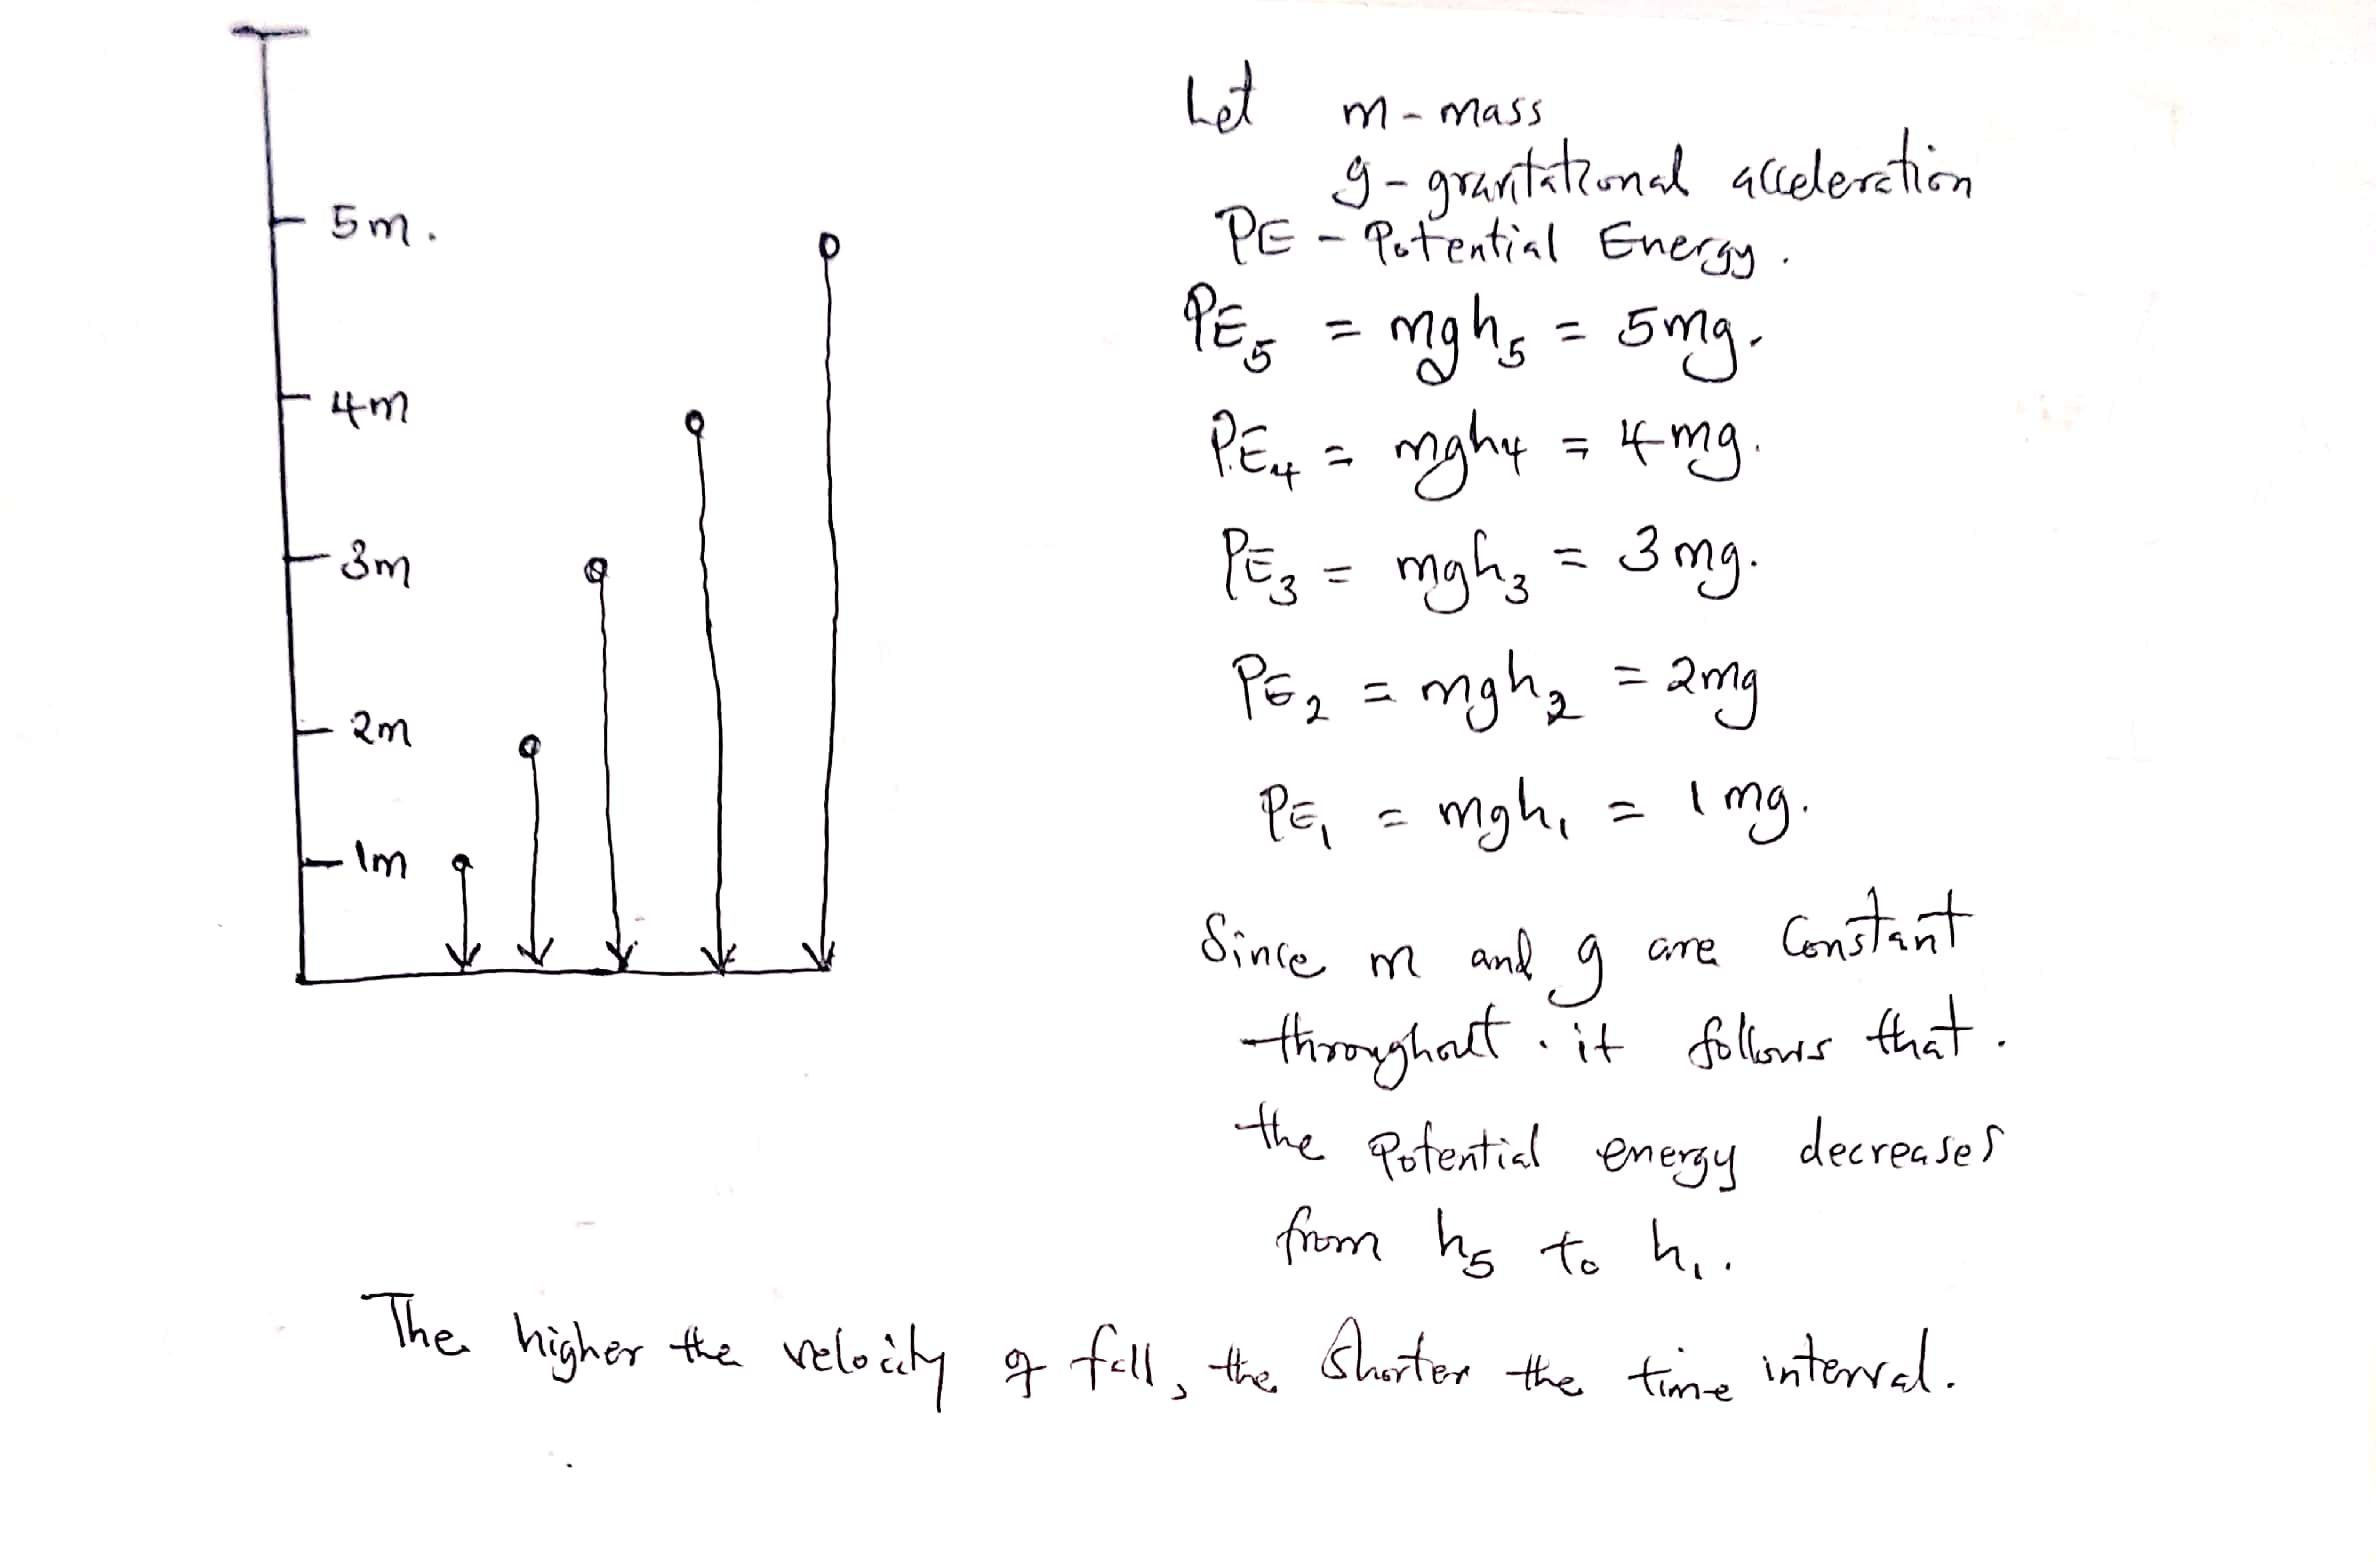 5m.
4m
3m
2m
1m
Let m - mass
g - gravitational acceleration
PE - Potential Energy.
PE₅ = mgh₅ = 5mg.
PE₄ = mgh₄ = 4mg.
PE₃ = mgh₃ = 3mg.
PE₂ = mgh₂ = 2mg
PE₁ = mgh₁ = 1mg.
Since m and g are Constant
throughout. it follows that.
the Potential energy decreases
from h₅ to h₁.
The higher the velocity of fall, the Shorter the time interval.